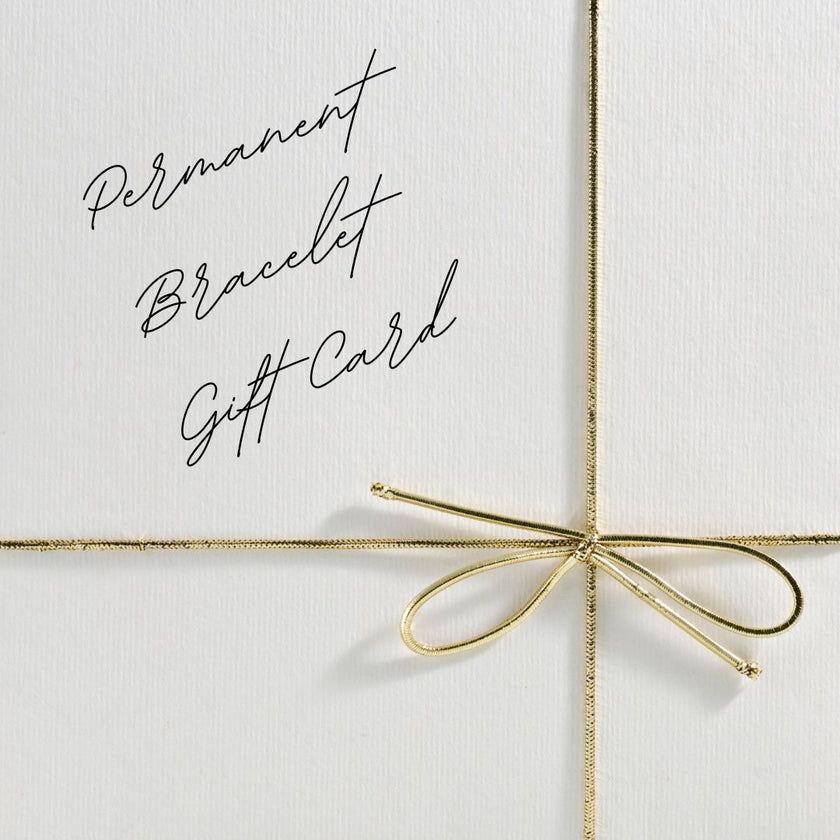 Permanent
Bracelet
Gift Card